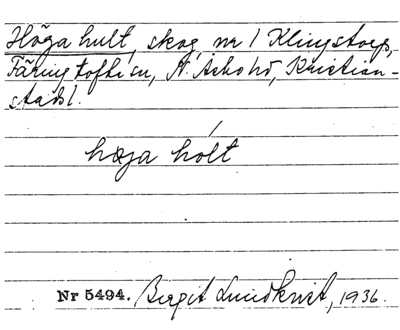 Höga hult, skog, nr 1 Klingstorp,
Färingtofta sn, N. Åsbo hd, Kristian-
stads l.
høga hölt
Nr 5494. Birgit Lundkvist, 1936.